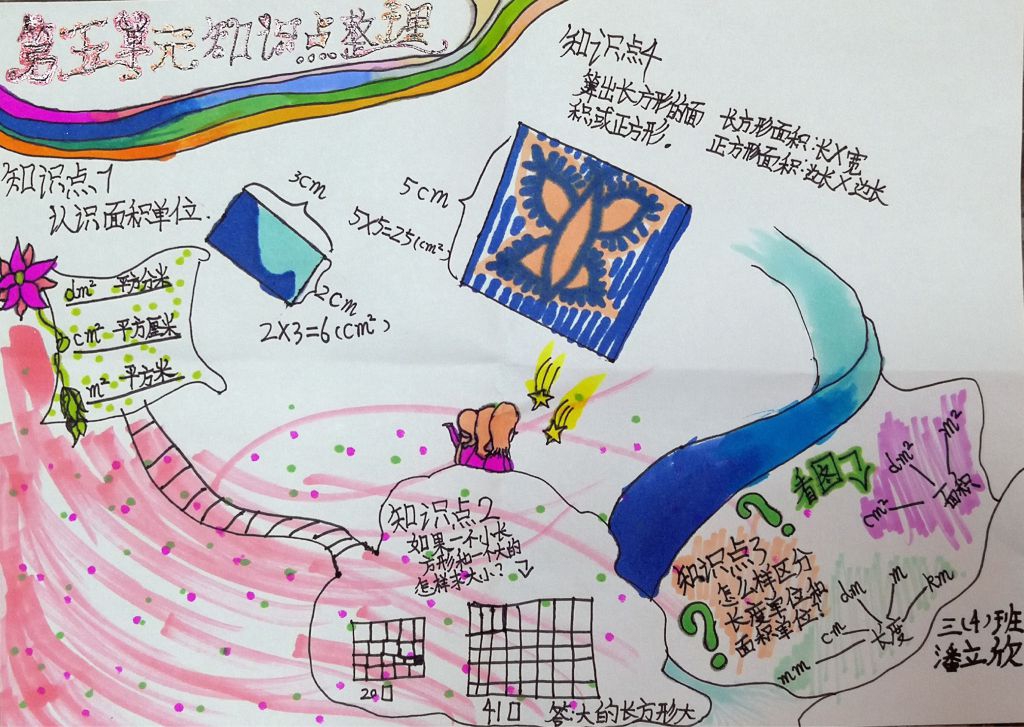 第五单元知识点整理
知识点1
认识面积单位.
dm² 平方分米
cm² 平方厘米
m² 平方米
3cm
2cm
2×3=6(cm²)
知识点4
算出长方形的面
积或正方形。
长方形面积:长×宽
正方形面积:边长×边长
5cm
5×5=25(cm²)
知识点2
如果一个小长
方形和一个大的
怎样求大小?
20口
41口
答:大的长方形大
知识点3
怎么样区分
长度单位和
面积单位?
看图
cm²
dm²
m²
面积
mm
cm
dm
m
km
长度
三(4)班
潘立欣